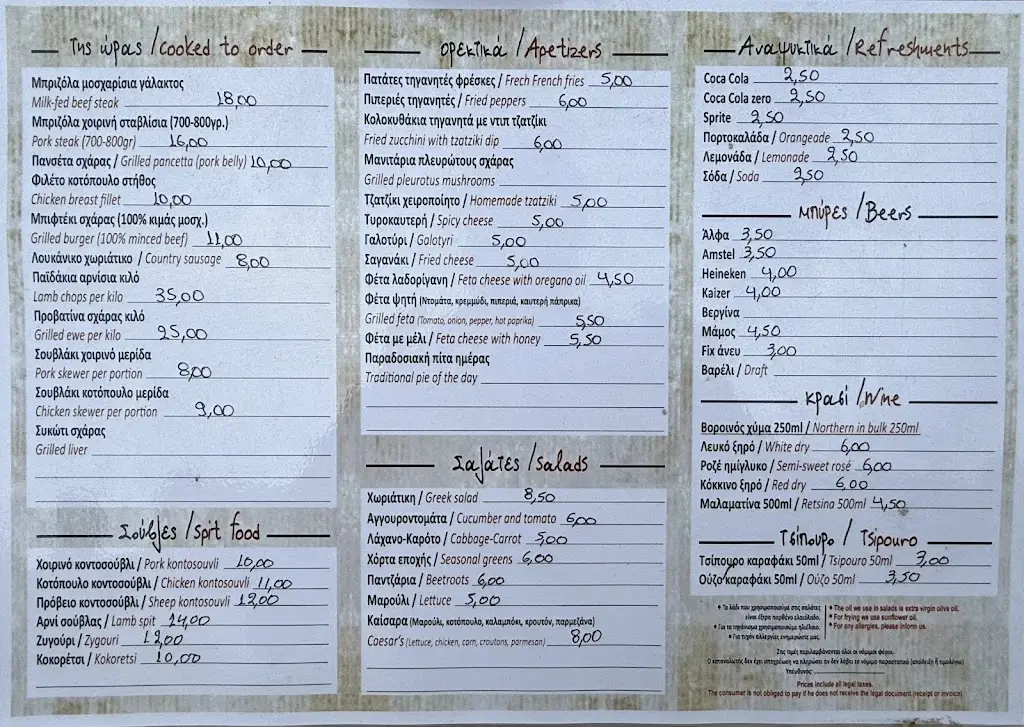 Της ώρας / Cooked to order
Μπριζόλα μοσχαρίσια γάλακτος
Milk-fed beef steak 18,00
Μπριζόλα χοιρινή σταβλίσια (700-800γρ.)
Pork steak (700-800gr) 16,00
Πανσέτα σχάρας / Grilled pancetta (pork belly) 10,00
Φιλέτο κοτόπουλο στήθος
Chicken breast fillet 10,00
Μπιφτέκι σχάρας (100% κιμάς μοσχ.)
Grilled burger (100% minced beef) 11,00
Λουκάνικο χωριάτικο / Country sausage 8,00
Παϊδάκια αρνίσια κιλό
Lamb chops per kilo 35,00
Προβατίνα σχάρας κιλό
Grilled ewe per kilo 25,00
Σουβλάκι χοιρινό μερίδα
Pork skewer per portion 8,00
Σουβλάκι κοτόπουλο μερίδα
Chicken skewer per portion 9,00
Συκώτι σχάρας
Grilled liver
Σούβλες / Spit food
Χοιρινό κοντοσούβλι / Pork kontosouvli 10,00
Κοτόπουλο κοντοσούβλι / Chicken kontosouvli 11,00
Πρόβειο κοντοσούβλι / Sheep kontosouvli 12,00
Αρνί σούβλας / Lamb spit 14,00
Ζυγούρι / Zygouri 12,00
Κοκορέτσι / Kokoretsi 10,00
Ορεκτικά / Apetizers
Πατάτες τηγανητές φρέσκες / Frech French fries 5,00
Πιπεριές τηγανητές / Fried peppers 6,00
Κολοκυθάκια τηγανητά με ντιπ τζατζίκι
Fried zucchini with tzatziki dip 6,00
Μανιτάρια πλευρώτους σχάρας
Grilled pleurotus mushrooms
Τζατζίκι χειροποίητο / Homemade tzatziki 5,00
Τυροκαυτερή / Spicy cheese 5,00
Γαλοτύρι / Galotyri 5,00
Σαγανάκι / Fried cheese 5,00
Φέτα λαδορίγανη / Feta cheese with oregano oil 4,50
Φέτα ψητή (Ντομάτα, κρεμμύδι, πιπεριά, καυτερή πάπρικα)
Grilled feta (Tomato, onion, pepper, hot paprika) 5,50
Φέτα με μέλι / Feta cheese with honey 5,50
Παραδοσιακή πίτα ημέρας
Traditional pie of the day
Σαλάτες / Salads
Χωριάτικη / Greek salad 8,50
Αγγουροντομάτα / Cucumber and tomato 6,00
Λάχανο-Καρότο / Cabbage-Carrot 5,00
Χόρτα εποχής / Seasonal greens 6,00
Παντζάρια / Beetroots 6,00
Μαρούλι / Lettuce 5,00
Καίσαρα (Μαρούλι, κοτόπουλο, καλαμπόκι, κρουτόν, παρμεζάνα)
Caesar's (Lettuce, chicken, corn, croutons, parmesan) 8,00
Αναψυκτικά / Refreshments
Coca Cola 2,50
Coca Cola zero 2,50
Sprite 2,50
Πορτοκαλάδα / Orangeade 2,50
Λεμονάδα / Lemonade 2,50
Σόδα / Soda 2,50
Μπύρες / Beers
Άλφα 3,50
Amstel 3,50
Heineken 4,00
Kaizer 4,00
Βεργίνα
Μάμος 4,50
Fix άνευ 3,00
Βαρέλι / Draft
Κρασί / Wine
Βοροινός χύμα 250ml / Northern in bulk 250ml
Λευκό ξηρό / White dry 6,00
Ροζέ ημίγλυκο / Semi-sweet rosé 6,00
Κόκκινο ξηρό / Red dry 6,00
Μαλαματίνα 500ml / Retsina 500ml 4,50
Τσίπουρο / Tsipouro
Τσίπουρο καραφάκι 50ml / Tsipouro 50ml 3,00
Ούζο καραφάκι 50ml / Ούζο 50ml 3,50
• Το λάδι που χρησιμοποιούμε στις σαλάτες
είναι έξτρα παρθένο ελαιόλαδο.
• Για το τηγάνισμα χρησιμοποιούμε ηλιέλαιο.
• Για τυχόν αλλεργίες ενημερώστε μας.
• The oil we use in salads is extra virgin olive oil.
• For frying we use sunflower oil.
• For any allergies, please inform us.
Στις τιμές περιλαμβάνονται όλοι οι νόμιμοι φόροι.
Ο καταναλωτής δεν έχει υποχρέωση να πληρώσει αν δεν λάβει το νόμιμο παραστατικό (απόδειξη ή τιμολόγιο)
Υπεύθυνος:
Prices include all legal taxes.
The consumer is not obliged to pay if he does not receive the legal document (receipt or invoice)